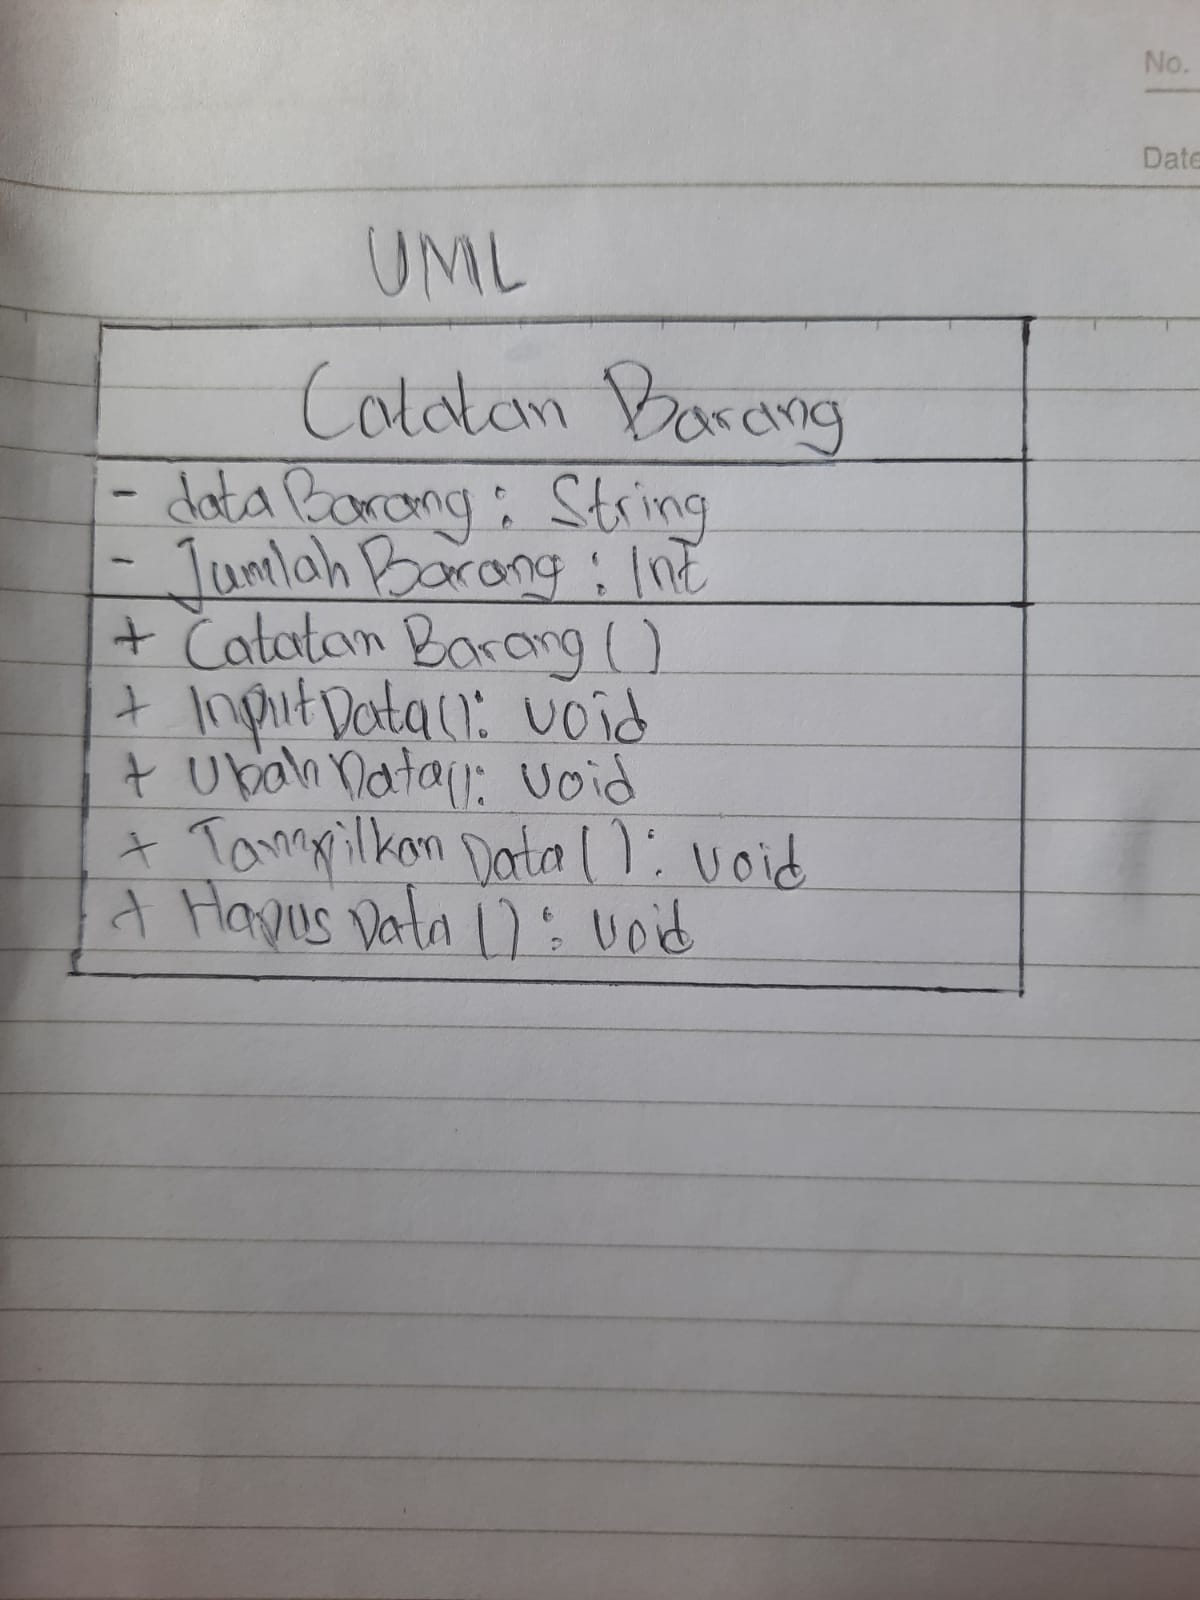 No.
Date
UML
Catatan Barang
- data Barang : String
- Jumlah Barang : Int
+ Catatan Barang ()
+ Input Data (): void
+ Ubah Data (): void
+ Tampilkan Data () : void
+ Hapus Data () : void